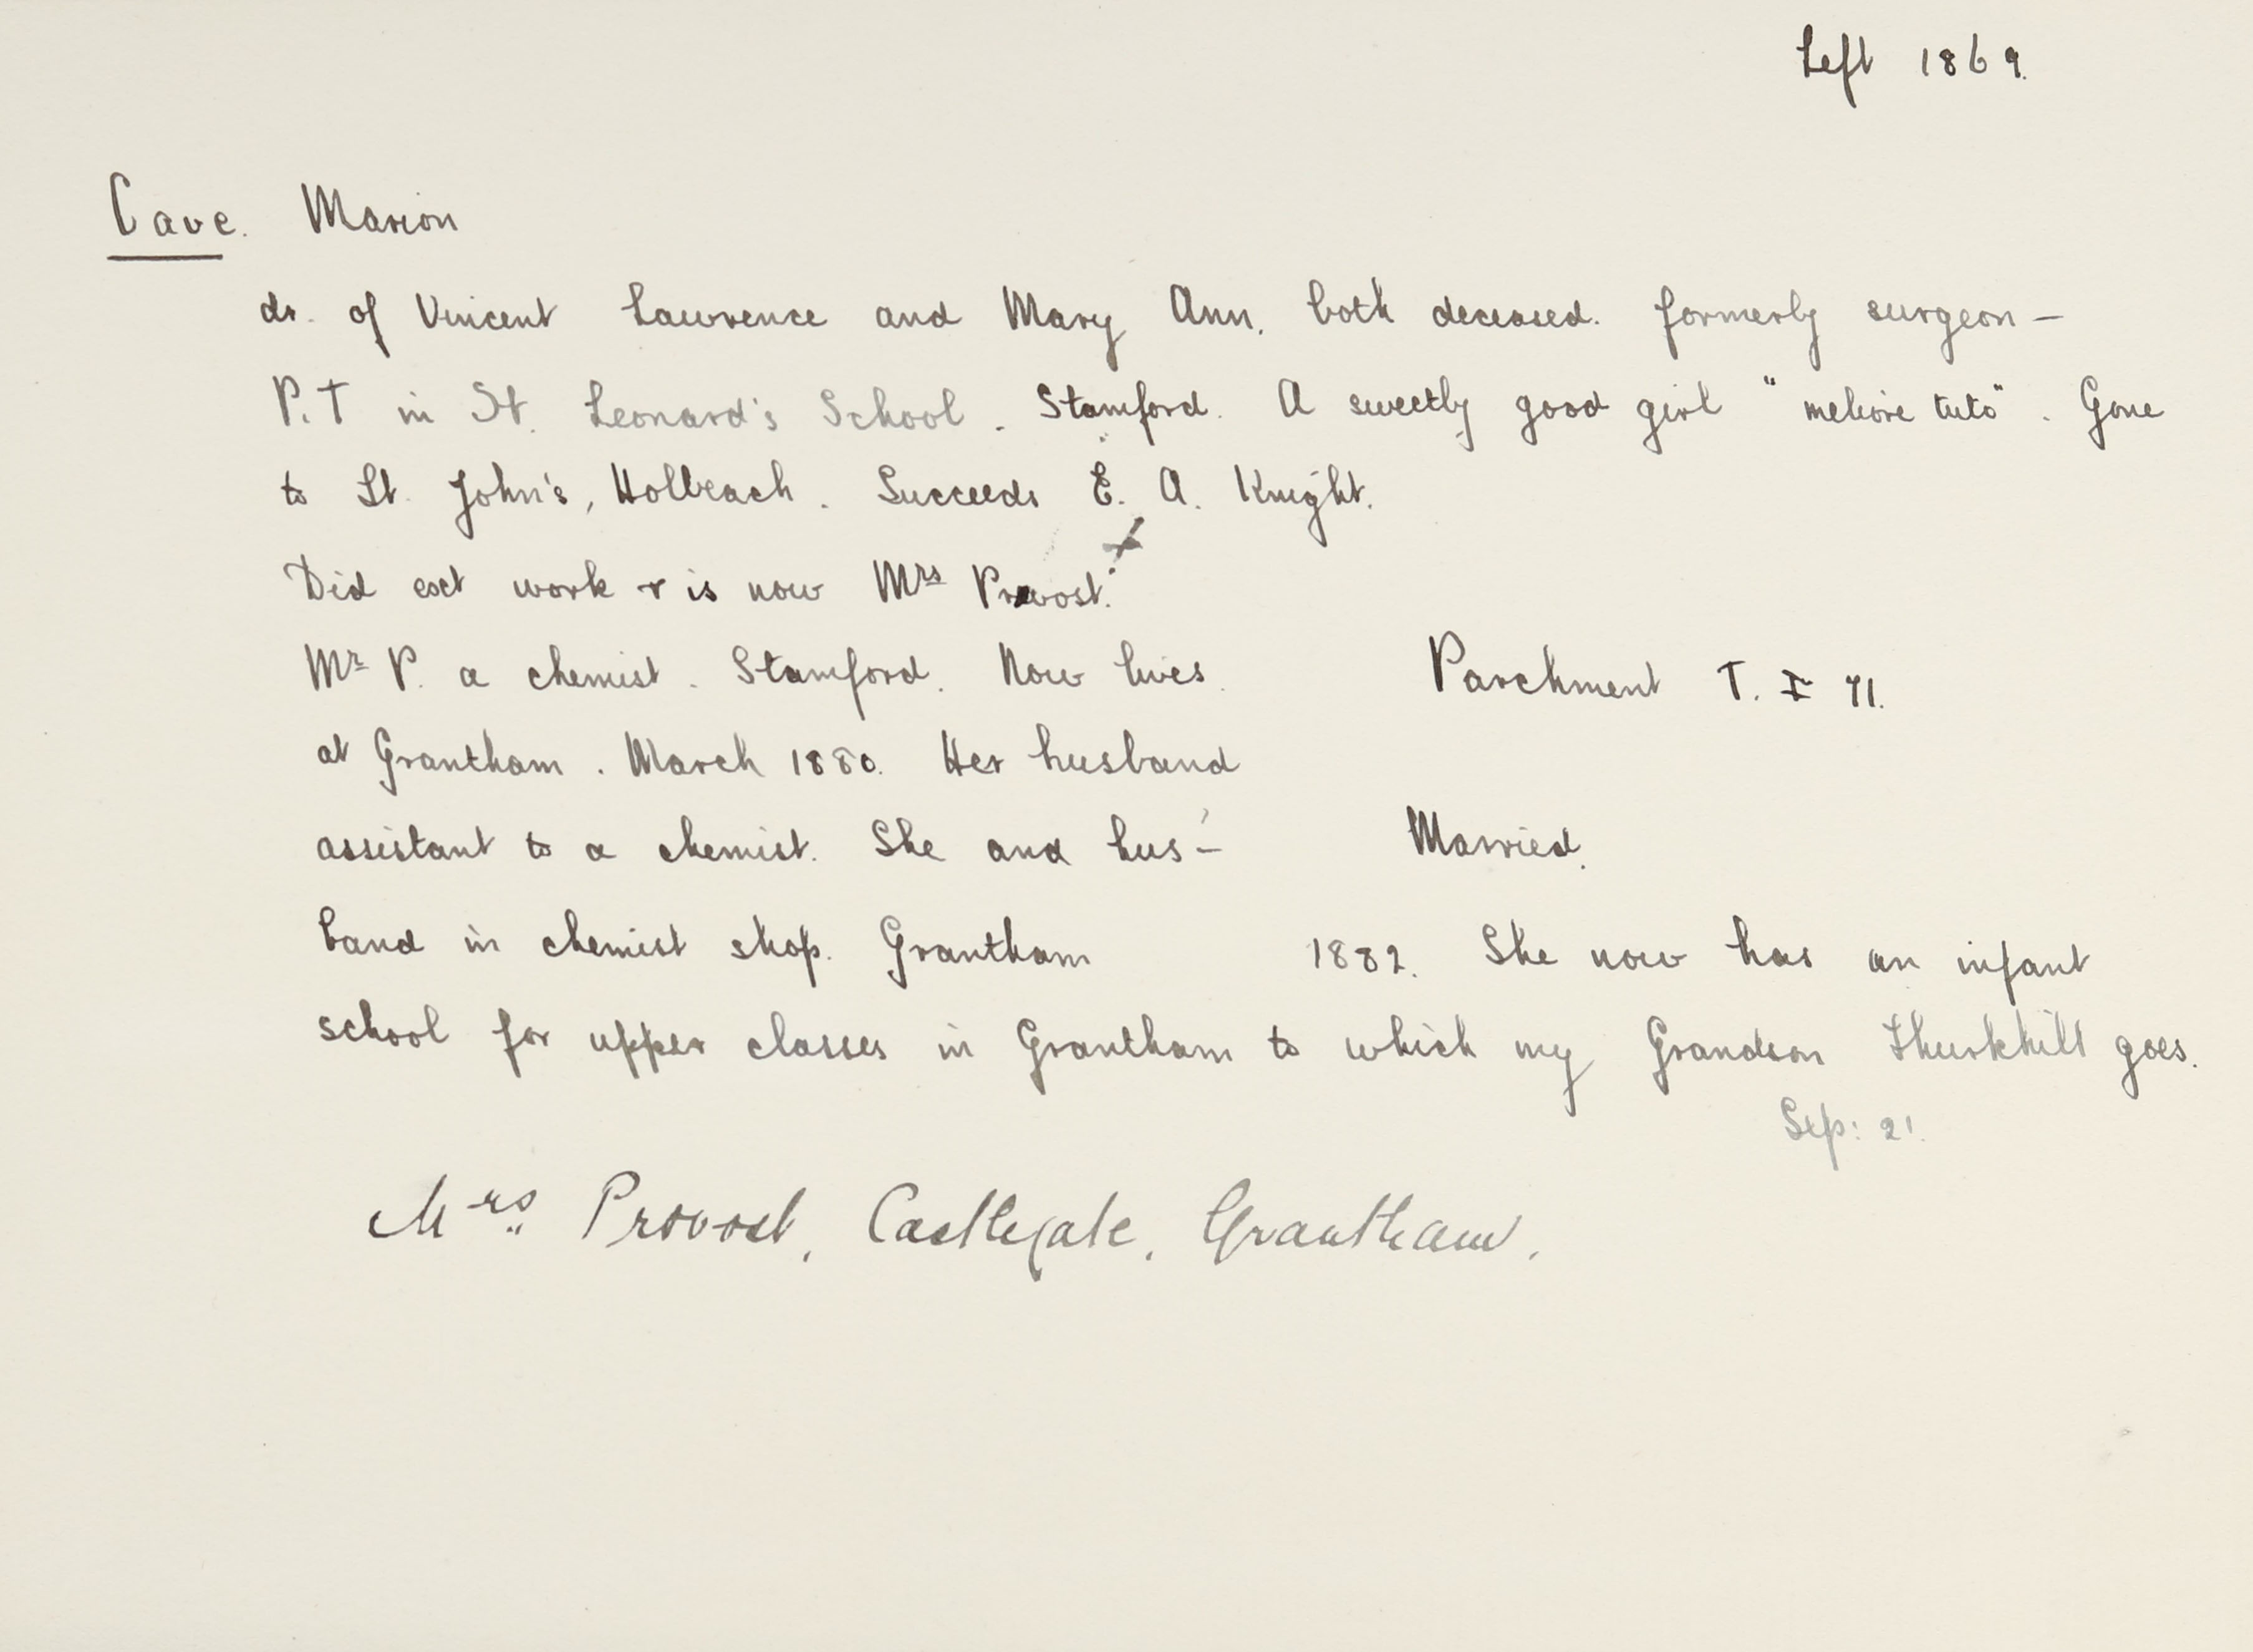 Left 1869.
Cave. Marion
dr. of Vincent Lawrence and Mary Ann, both deceased. formerly surgeon —
P.T in St. Leonard's School. Stamford. A sweetly good girl " meliore tuto". Gone
to St. John's, Holbeach. Succeeds E. A. Knight.
Did exct work & is now Mrs Provost.
Mr P. a chemist. Stamford. Now lives
Parchment T. I 71.
at Grantham. March 1880. Her husband
assistant to a chemist. She and hus-
Married.
band in chemist shop. Grantham 1882. She now has an infant
school for upper classes in Grantham to which my Grandson Thurkhill goes.
Sep: 21.
Mrs Provost, Castlegate, Grantham.